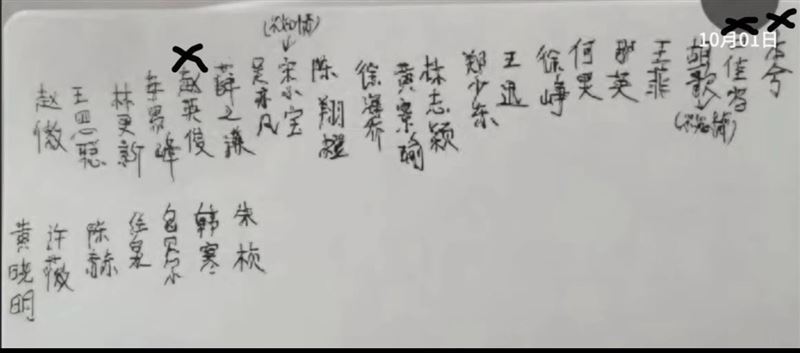 10月01日
胡歌
(不知情)
王菲
那英
何炅
徐峥
王迅
郑少东
林志颖
黄景瑜
徐海乔
陈翔
(不知情)
宋小宝
吴亦凡
薛之谦
赵英俊
林更新
王思聪
赵
朱桢
韩寒
包贝尔
任泉
陈赫
许薇
黄晓明